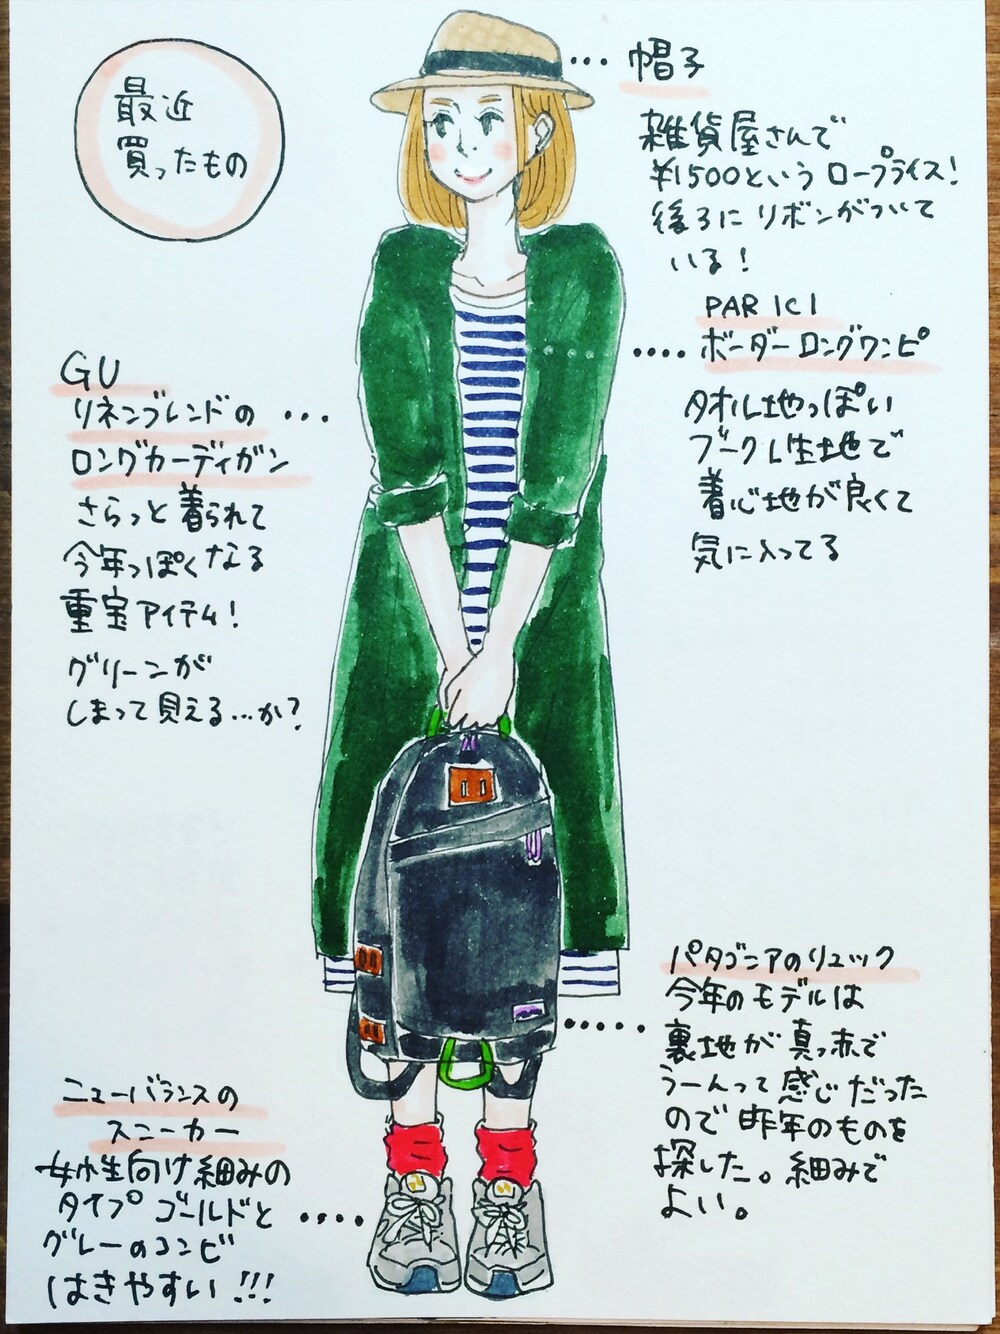 最近
買ったもの
帽子
雑貨屋さんで
¥1500という ロープライス！
後ろに リボンがついて
いる！
PAR ICI
ボーダーロングワンピ
タオル地っぽい
ブークレ生地で
着心地が良くて
気に入ってる
GU
リネンブレンドの
ロングカーディガン
さらっと着られて
今年っぽくなる
重宝アイテム！
グリーンが
しまって見える…か？
パタゴニアのリュック
今年のモデルは
裏地が真っ赤で
うーんって感じだった
ので昨年のものを
探した。細みで
よい。
ニューバランスの
スニーカー
女性向け細みの
タイプ ゴールドと
グレーのコンビ
はきやすい!!!